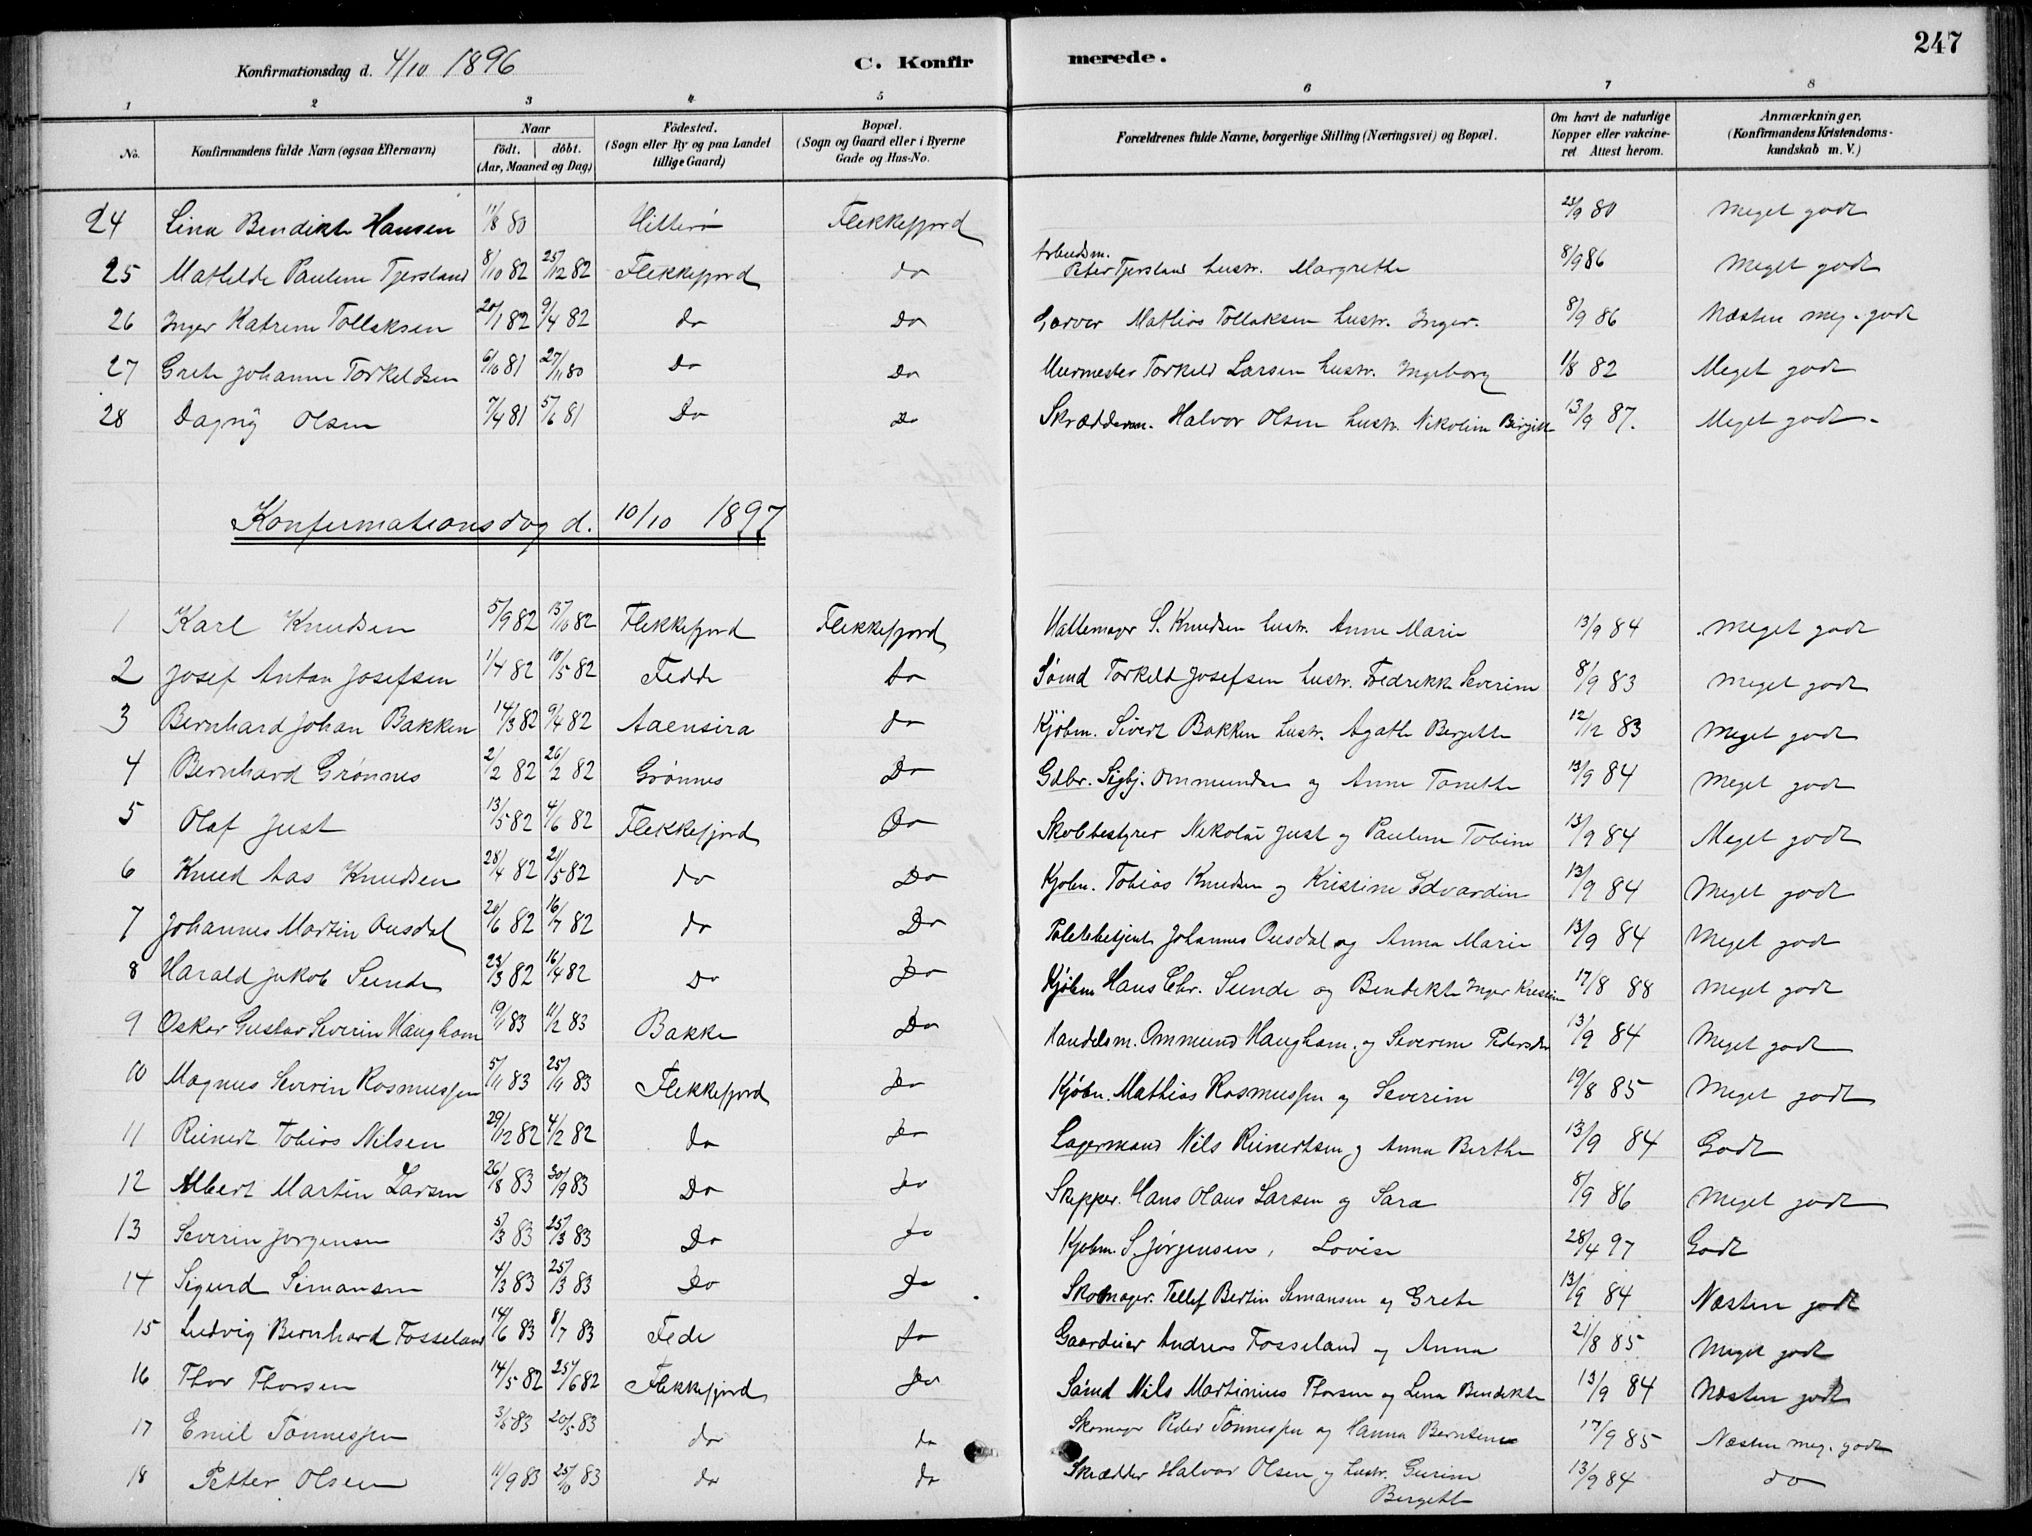 247
Konfirmationsdag d. 4/10 1896 C. Konfirmerede.
1 2 3 4 5 6 7 8
No. Konfirmandens fulde Navn (ogsaa Efternavn) Naar født. døbt. (Aar, Maaned og Dag) Fødested. (Sogn eller By og paa Landet tillige Gaard) Bopæl. (Sogn og Gaard eller i Byerne Gade og Hus-No. Forældrenes fulde Navne, borgerlige Stilling (Næringsvei) og Bopæl. Om havt de naturlige Kopper eller vakcineret Attest herom. Anmærkninger, (Konfirmandens Kristendomskundskab m. V.)
24 Lina Bendikte Hansen 11/8 80 Hitterø Flekkefjord 23/9 80 Meget godt
25 Mathilde Pauline Tjersland 8/10 82 25/12 82 Flekkefjord do Arbeidsm. Peter Tjersland hustr. Margrethe 8/9 86 Meget godt
26 Inger Katrine Tollaksen 20/1 82 9/4 82 do Do Garver Mathias Tollaksen hustr. Inger. 8/9 86 Næsten meg. godt
27 Grete Johanne Torkeldsen 6/10 81 27/11 80 Do Do Murmester Torkeld Larsen hustr. Ingeborg 1/8 82 Meget godt
28 Dagny Olsen 7/4 81 5/6 81 Do Do Skrædderm. Halvor Olsen hustr. Nikoline Birgitte 13/9 87. Meget godt
Konfirmationsdag d. 10/10 1897
1 Karl Knudsen 5/9 82 15/10 82 Flekkefjord Flekkefjord Hattemager S. Knudsen hustr. Anne Marie 13/9 84 Meget godt
2 Josef Anton Josefsen 1/4 82 10/5 82 Fedde do Sømd Torkeld Josefsen hustr. Fredrikke Severine 8/9 83 Meget godt
3 Bernhard Johan Bakken 14/3 82 9/4 82 Aaensira do Kjøbm. Sivert Bakken hustr. Agathe Bergette 12/12 83 Meget godt
4 Bernhard Grønnes 2/2 82 26/2 82 Grønnes Do Gdbr. Sigbj. Ommundsen og Anne Tonette 13/9 84 Meget godt
5 Olaf Just 13/5 82 4/6 82 Flekkefjord Do Skolbestyrer Nikolai Just og Pauline Tobine 13/9 84 Meget godt
6 Knud Aas Knudsen 28/4 82 21/5 82 do Do Kjøbm. Tobias Knudsen og Kristine Edvardine 13/9 84 Meget godt
7 Johannes Martin Ousdal 20/6 82 16/7 82 do Do Politibetjent Johannes Ousdal og Anna Marie 13/9 84 Meget godt
8 Harald Jakob Sunde 23/3 82 16/4 82 Do Do Kjøbm Hans Chr. Sunde og Bendikte Inger Kristine 17/8 88 Meget godt
9 Oskar Gustav Severin Haugham 19/1 83 11/2 83 Bakke Do Handelsm. Ommund Haugham og Severine Pedersdtr 13/9 84 Meget godt
10 Magnus Severin Rasmussen 5/11 83 25/11 83 Flekkefjord Do Kjøbm. Mathias Rasmussen og Severine 19/8 85 Meget godt
11 Reinert Tobias Nilsen 29/12 82 4/2 82 Do Do Lagermand Nils Reinertsen og Anna Berthe 13/9 84 Godt
12 Albert Martin Larsen 26/8 83 30/9 83 Do Do Skipper. Hans Olaus Larsen og Sara 8/9 86 Meget godt
13 Severin Jørgensen 5/3 83 25/3 83 Do Do Kjøbm. S. Jørgensen, Lovise 28/4 97 Godt
14 Sigurd Simonsen 4/3 83 25/3 83 Do Do Skomager. Tellef Bertin Simonsen og Grete 13/9 84 Næsten godt
15 Ludvig Bernhard Fosseland 14/6 83 8/7 83 Fede Do Gaardeier Andreas Fosseland og Anna 21/8 85 Meget godt
16 Thor Thorsen 14/5 82 25/6 82 Flekkefjord Do Sømd Nils Martinius Thorsen og Lena Bendikte 13/9 84 Næsten godt
17 Emil Tønnessen 20/5 83 do do Skomager Peder Tønnessen og Hanna Berntine 17/9 85 Næsten meg. godt
18 Petter Olsen 11/9 83 83 do do Skrædder Halvor Olsen og hustr. Gurine Bergette 13/9 84 do